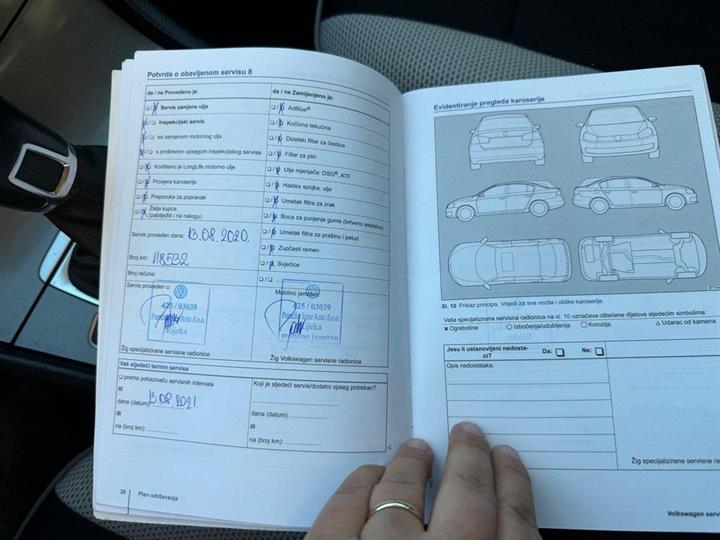 Potvrda o obavljenom servisu 8
da / ne Provedeno je:
Servis zamjene ulja
Inspekcijski servis
sa zamjenom motornog ulja
s proširenim opsegom inspekcijskog servisa
Korišteno je LongLife motorno ulje
Provjera karoserije
Preporuka za popravak
Želja kupca
(zabilježiti i na nalogu)
Servis proveden dana: 13.08.2020.
Broj km: 118532
Broj računa:
Servis proveden u:
425 / 03039
Rijeka
Žig specijalizirane servisne radionice
da / ne Zamijenjeno je:
AdBlue®
Kočiona tekućina
Dizelski filtar za čestice
Filtar za plin
Ulje mjenjača: DSG®, ATF
Haldex spojka: ulje
Umetak filtra za zrak
Boca za punjenje gume (brtveno sredstvo)
Umetak filtra za prašinu i pelud
Zupčasti remen
Svjećice
Mobilno jamstvo:
425 / 03039
Rijeka
mobilno jamstvo
Žig Volkswagen servisne radionice
Vaš sljedeći termin servisa
prema pokazivaču servisnih intervala
ili
dana (datum): 13.08.2021.
ili
na (broj km):
Koji je sljedeći servis/dodatni opseg potreban?
dana (datum):
ili
na (broj km):
20 Plan održavanja
Evidentiranje pregleda karoserije
Sl. 10 Prikaz principa. Vrijedi za sva vozila i oblike karoserije.
Vaša specijalizirana servisna radionica na sl. 10 označava oštećene dijelove sljedećim simbolima:
× Ogrebotine ○ Izbočenja/udubljenja □ Korozija △ Udarac od kamena
Jesu li ustanovljeni nedosta-
ci? Da: Ne:
Opis nedostataka:
Žig specijalizirane servisne